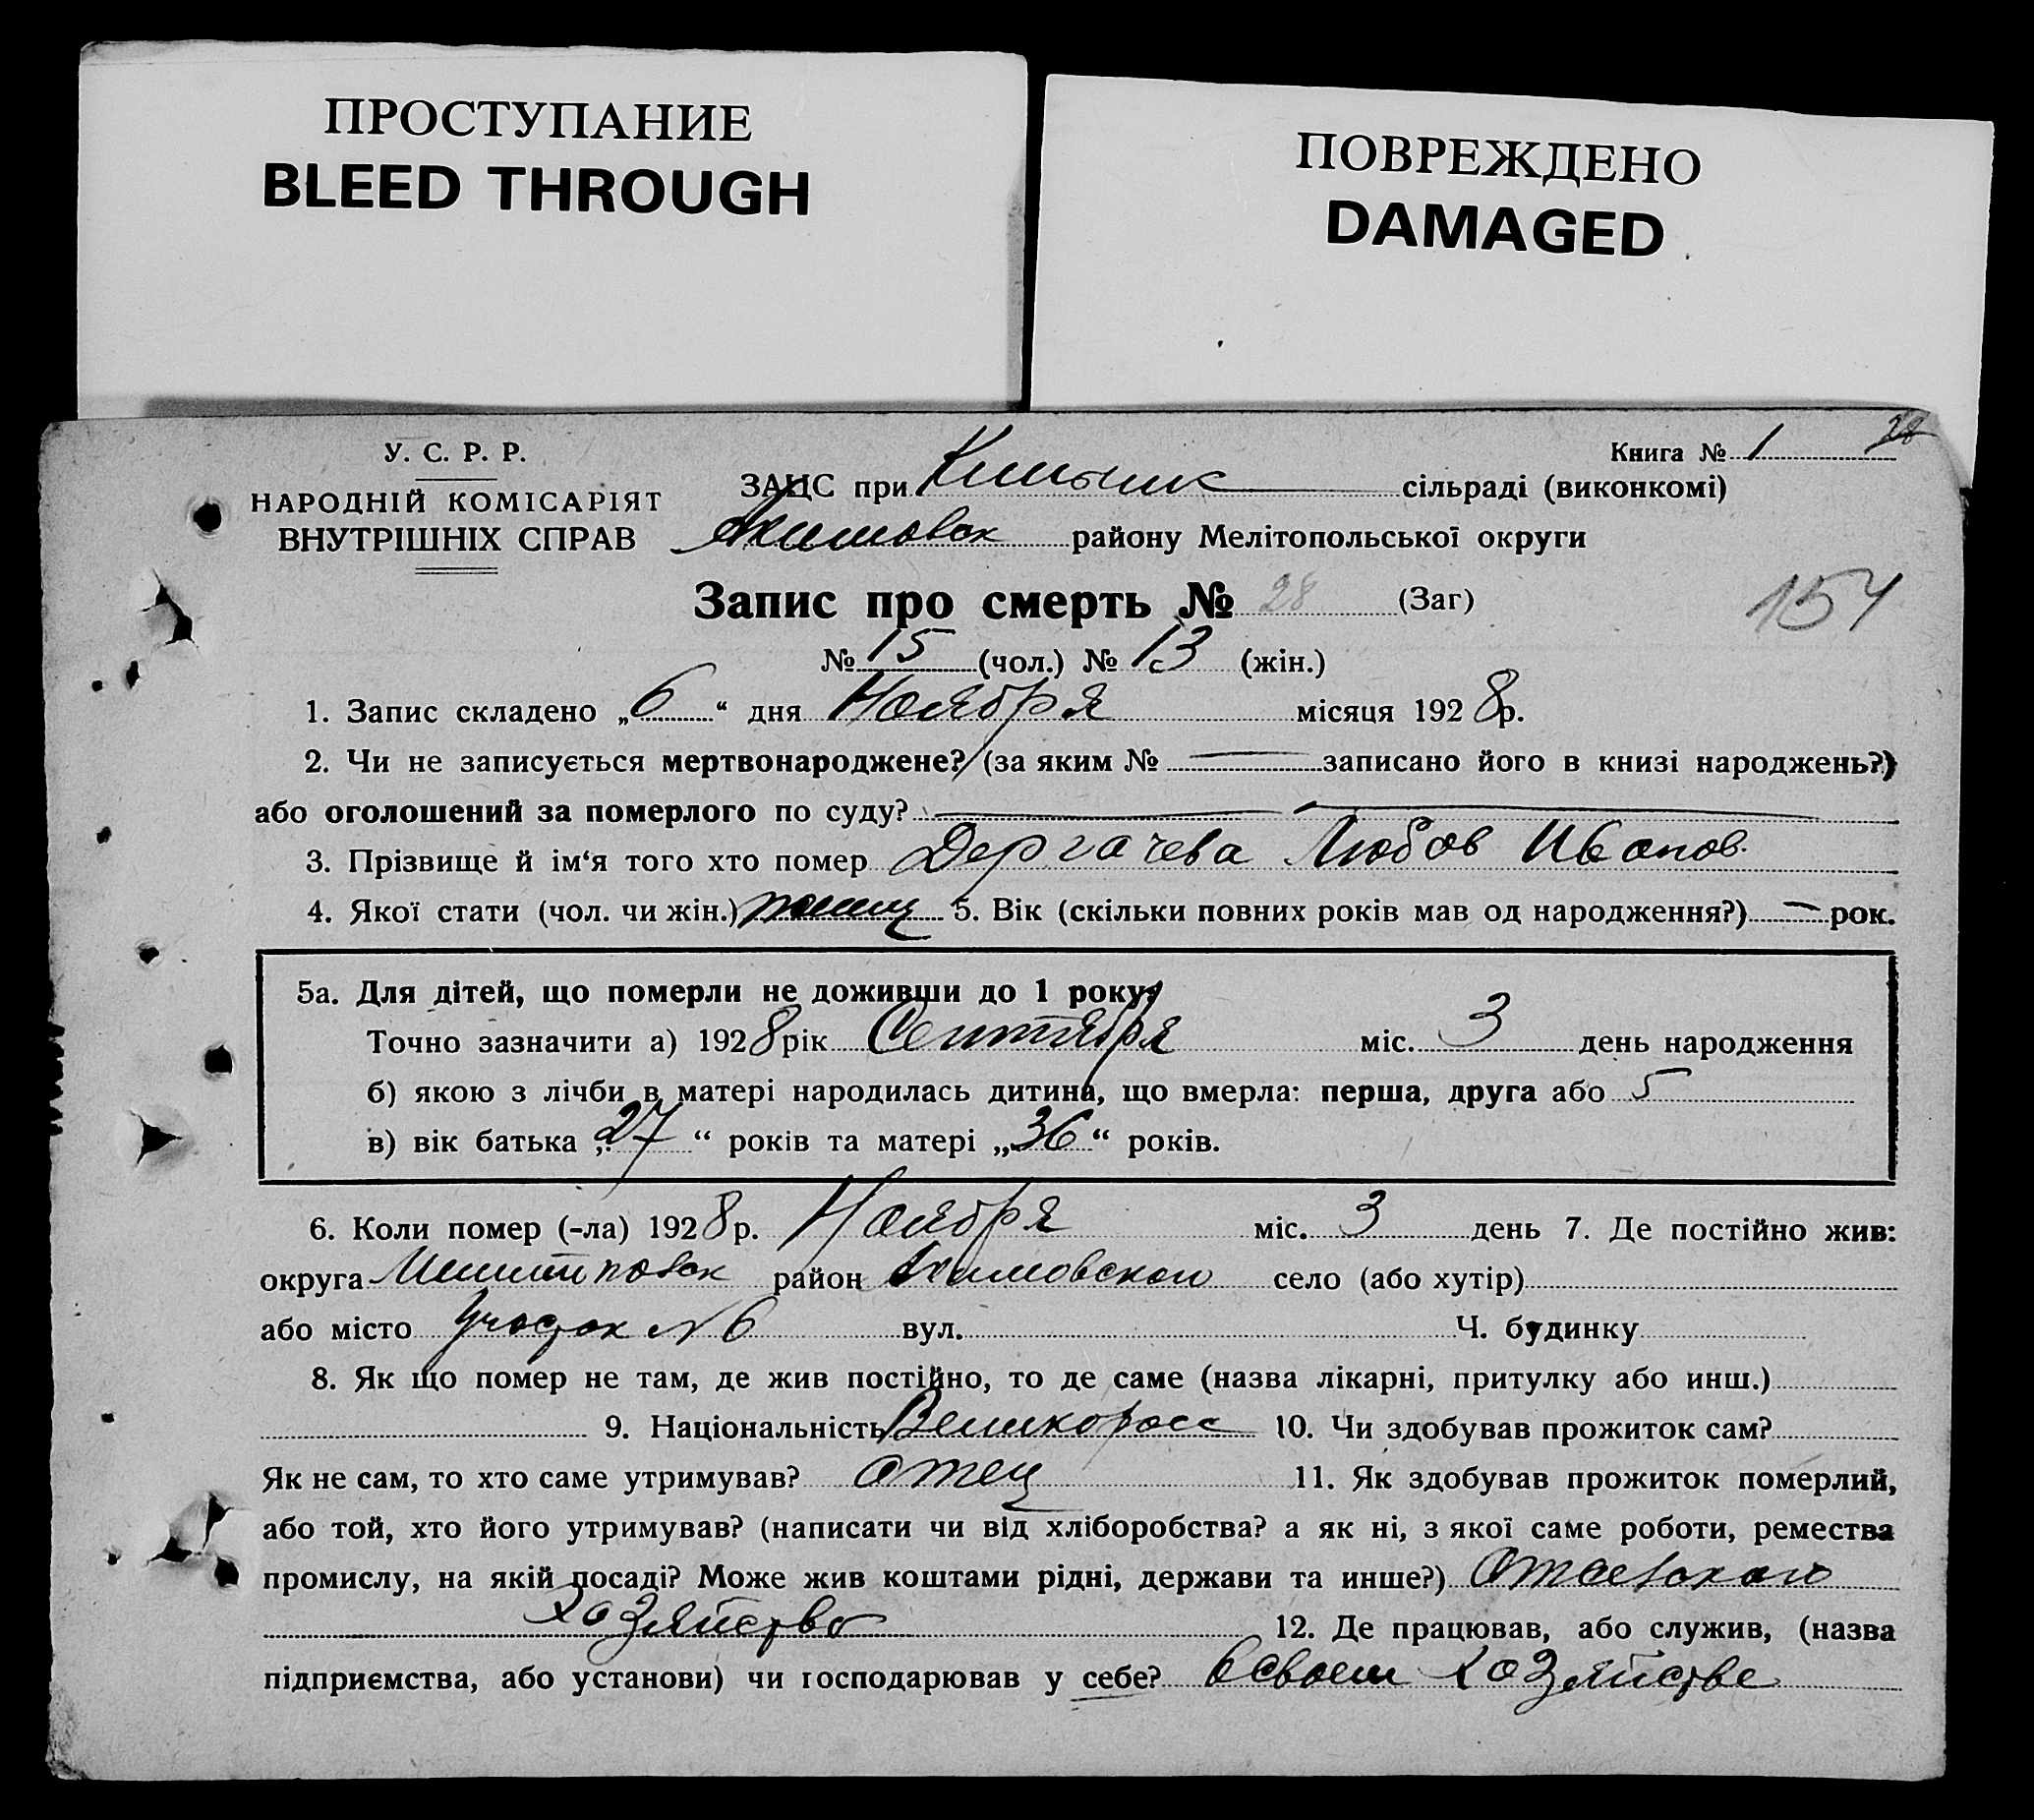 ПРОСТУПАНИЕ
BLEED THROUGH
ПОВРЕЖДЕНО
DAMAGED
У. С. Р. Р.
НАРОДНІЙ КОМІСАРІЯТ
ВНУТРІШНІХ СПРАВ
Книга № 1 28
ЗАЦС при сільраді (виконкомі)
Акимовск району Мелітопольської округи
Запис про смерть № 28 (Заг)
154
№ 15 (чол.) № 13 (жін.)
1. Запис складено „6“ дня Ноября місяця 1928р.
2. Чи не записується мертвонароджене? (за яким № — записано його в книзі народжень?)
або оголошений за померлого по суду? —
3. Прізвище й ім‘я того хто помер Дергачева Любов Иванов.
4. Якої стати (чол. чи жін.) 5. Вік (скільки повних років мав од народження?) — рок.
5а. Для дітей, що померли не доживши до 1 року:
Точно зазначити а) 1928 рік Сентября міс. 3 день народження
б) якою з лічби в матері народилась дитина, що вмерла: перша, друга або 5
в) вік батька „27“ років та матері „36“ років.
6. Коли помер (-ла) 1928р. Ноября міс. 3 день 7. Де постійно жив:
округа район Акимовского село (або хутір)
або місто Участок № 6 вул. Ч. будинку
8. Як що помер не там, де жив постійно, то де саме (назва лікарні, притулку або инш.)
9. Національність Великоросс 10. Чи здобував прожиток сам?
Як не сам, то хто саме утримував? отец 11. Як здобував прожиток померлий,
або той, хто його утримував? (написати чи від хліборобства? а як ні, з якої саме роботи, ремества
промислу, на якій посаді? Може жив коштами рідні, держави та инше?)
хозяйство 12. Де працював, або служив, (назва
підприємства, або установи) чи господарював у себе? в своем хозяйстве